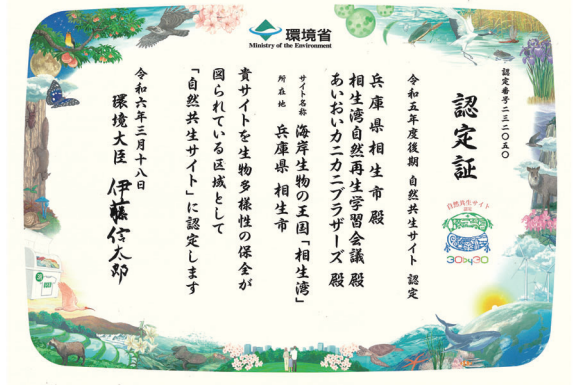 環境省
Ministry of the Environment
認定番号二三二〇五〇
認定証
自然共生サイト
認定
30by30
令和五年度後期 自然共生サイト 認定
兵庫県相生市 殿
相生湾自然再生学習会議 殿
あいおいカニカニブラザーズ 殿
サイト名称 海岸生物の王国「相生湾」
所在地 兵庫県相生市
貴サイトを生物多様性の保全が
図られている区域として
「自然共生サイト」に認定します
令和六年三月十八日
環境大臣 伊藤信太郎